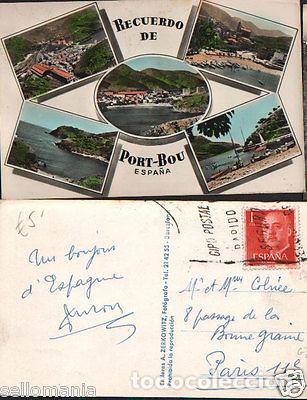 RECUERDO
DE
PORT-BOU
ESPAÑA
£5'
Un bonjour
d'Espagne
A. ZERKOWITZ, Fotógrafo - Tel. 21 42 55 - Barcelona
la reproducción
GIRO POSTAL
RAPIDO
ESPAÑA
Mr et Mme
8 passage de la
Bonne graine
Paris 11e
sellomania
todocoleccion